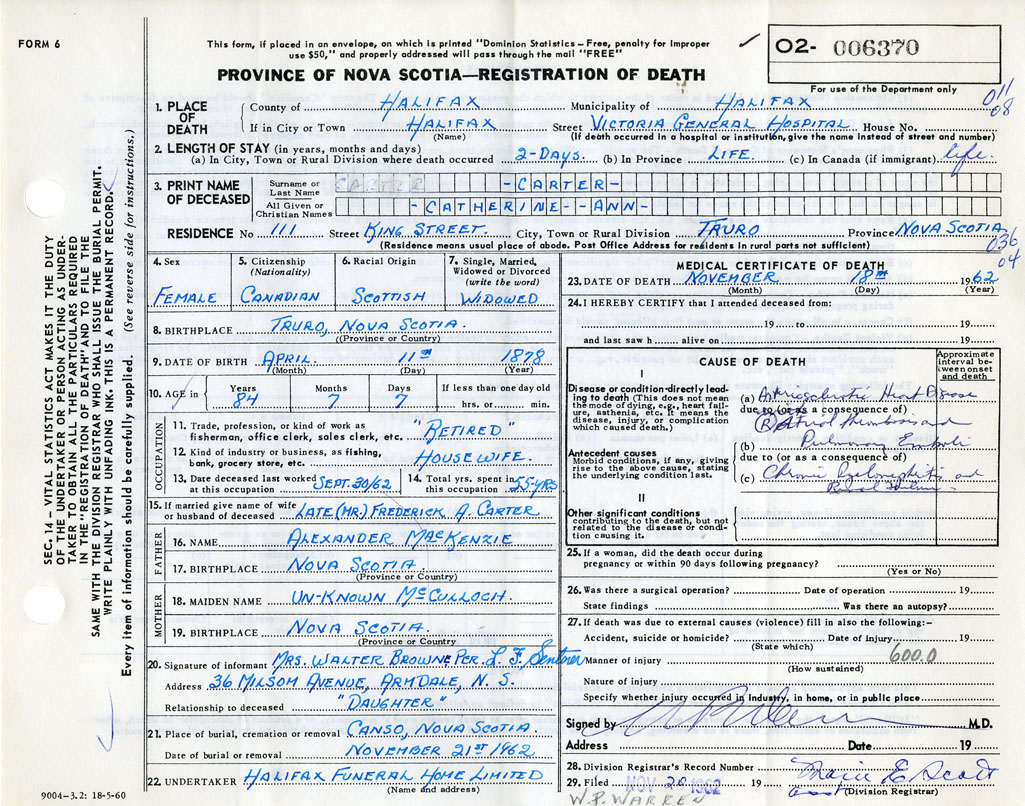 FORM 6
This form, if placed in an envelope, on which is printed "Dominion Statistics – Free, penalty for improper
use $50," and properly addressed will pass through the mail "FREE"
✓
O2- 006370
PROVINCE OF NOVA SCOTIA—REGISTRATION OF DEATH
For use of the Department only
011
08
SEC. 14 – VITAL STATISTICS ACT MAKES IT THE DUTY
OF THE UNDERTAKER OR PERSON ACTING AS UNDER-
TAKER TO OBTAIN ALL THE PARTICULARS REQUIRED
IN THE "REGISTRATION OF DEATH" AND TO FILE THE
SAME WITH THE DIVISION REGISTRAR WHO SHALL ISSUE THE BURIAL PERMIT.
WRITE PLAINLY WITH UNFADING INK. THIS IS A PERMANENT RECORD.
Every item of information should be carefully supplied. (See reverse side for instructions.)
1. PLACE OF DEATH
County of HALIFAX Municipality of HALIFAX
If in City or Town HALIFAX Street VICTORIA GENERAL HOSPITAL House No.
(Name) (If death occurred in a hospital or institution, give the name instead of street and number)
2. LENGTH OF STAY (in years, months and days)
(a) In City, Town or Rural Division where death occurred 2-DAYS. (b) In Province LIFE. (c) In Canada (if immigrant) life.
3. PRINT NAME OF DECEASED
Surname or Last Name CARTER -CARTER-
All Given or Christian Names -CATHERINE--ANN-
RESIDENCE No 111 Street KING STREET. City, Town or Rural Division TRURO Province NOVA SCOTIA
(Residence means usual place of abode. Post Office Address for residents in rural parts not sufficient)
036
04
4. Sex
FEMALE
5. Citizenship
(Nationality)
CANADIAN
6. Racial Origin
SCOTTISH
7. Single, Married,
Widowed or Divorced
(write the word)
WIDOWED
8. BIRTHPLACE TRURO, NOVA SCOTIA.
(Province or Country)
9. DATE OF BIRTH APRIL. 11TH 1878
(Month) (Day) (Year)
10. AGE in Years 84 Months 7 Days 7 If less than one day old
hrs. or min.
OCCUPATION
11. Trade, profession, or kind of work as
fisherman, office clerk, sales clerk, etc. "RETIRED"
12. Kind of industry or business, as fishing,
bank, grocery store, etc. HOUSEWIFE.
13. Date deceased last worked
at this occupation SEPT. 30/62
14. Total yrs. spent in
this occupation 25-YRS
15. If married give name of wife
or husband of deceased LATE (MR.) FREDERICK A. CARTER
FATHER
16. NAME ALEXANDER MACKENZIE
17. BIRTHPLACE NOVA SCOTIA.
(Province or Country)
MOTHER
18. MAIDEN NAME UN-KNOWN McCULLOCH.
19. BIRTHPLACE NOVA SCOTIA.
(Province or Country)
20. Signature of informant MRS. WALTER BROWNE PER L. F.
Address 36 MILSOM AVENUE, ARMDALE, N. S.
Relationship to deceased "DAUGHTER"
21. Place of burial, cremation or removal CANSO, NOVA SCOTIA.
Date of burial or removal NOVEMBER 21ST 1962
22. UNDERTAKER HALIFAX FUNERAL HOME LIMITED
(Name and address)
MEDICAL CERTIFICATE OF DEATH
23. DATE OF DEATH NOVEMBER 18TH 1962
(Month) (Day) (Year)
24. I HEREBY CERTIFY that I attended deceased from:
19 to 19
and last saw h alive on 19
CAUSE OF DEATH
Approximate
interval be-
tween onset
and death
I
Disease or condition directly lead-
ing to death (This does not mean
the mode of dying, e.g., heart fail-
ure, asthenia, etc. It means the
disease, injury, or complication
which caused death.)
(a) Heart Disease
due to (or as a consequence of)
thrombosis and
(b) Pulmonary Emboli
Antecedent causes
Morbid conditions, if any, giving
rise to the above cause, stating
the underlying condition last.
due to (or as a consequence of)
(c) Chronic Pyelonephritis and
Renal
II
Other significant conditions
contributing to the death, but not
related to the disease or condi-
tion causing it.
25. If a woman, did the death occur during
pregnancy or within 90 days following pregnancy?
(Yes or No)
26. Was there a surgical operation? Date of operation 19
State findings Was there an autopsy?
27. If death was due to external causes (violence) fill in also the following:–
Accident, suicide or homicide? Date of injury 19
(State which)
Manner of injury 600.0
(How sustained)
Nature of injury
Specify whether injury occurred in industry, in home, or in public place
Signed by M.D.
Address Date 19
28. Division Registrar's Record Number
29. Filed NOV 20 1962 19 Marie E. Scott
(Division Registrar)
W.P. WARREN
9004-3.2: 18-5-60